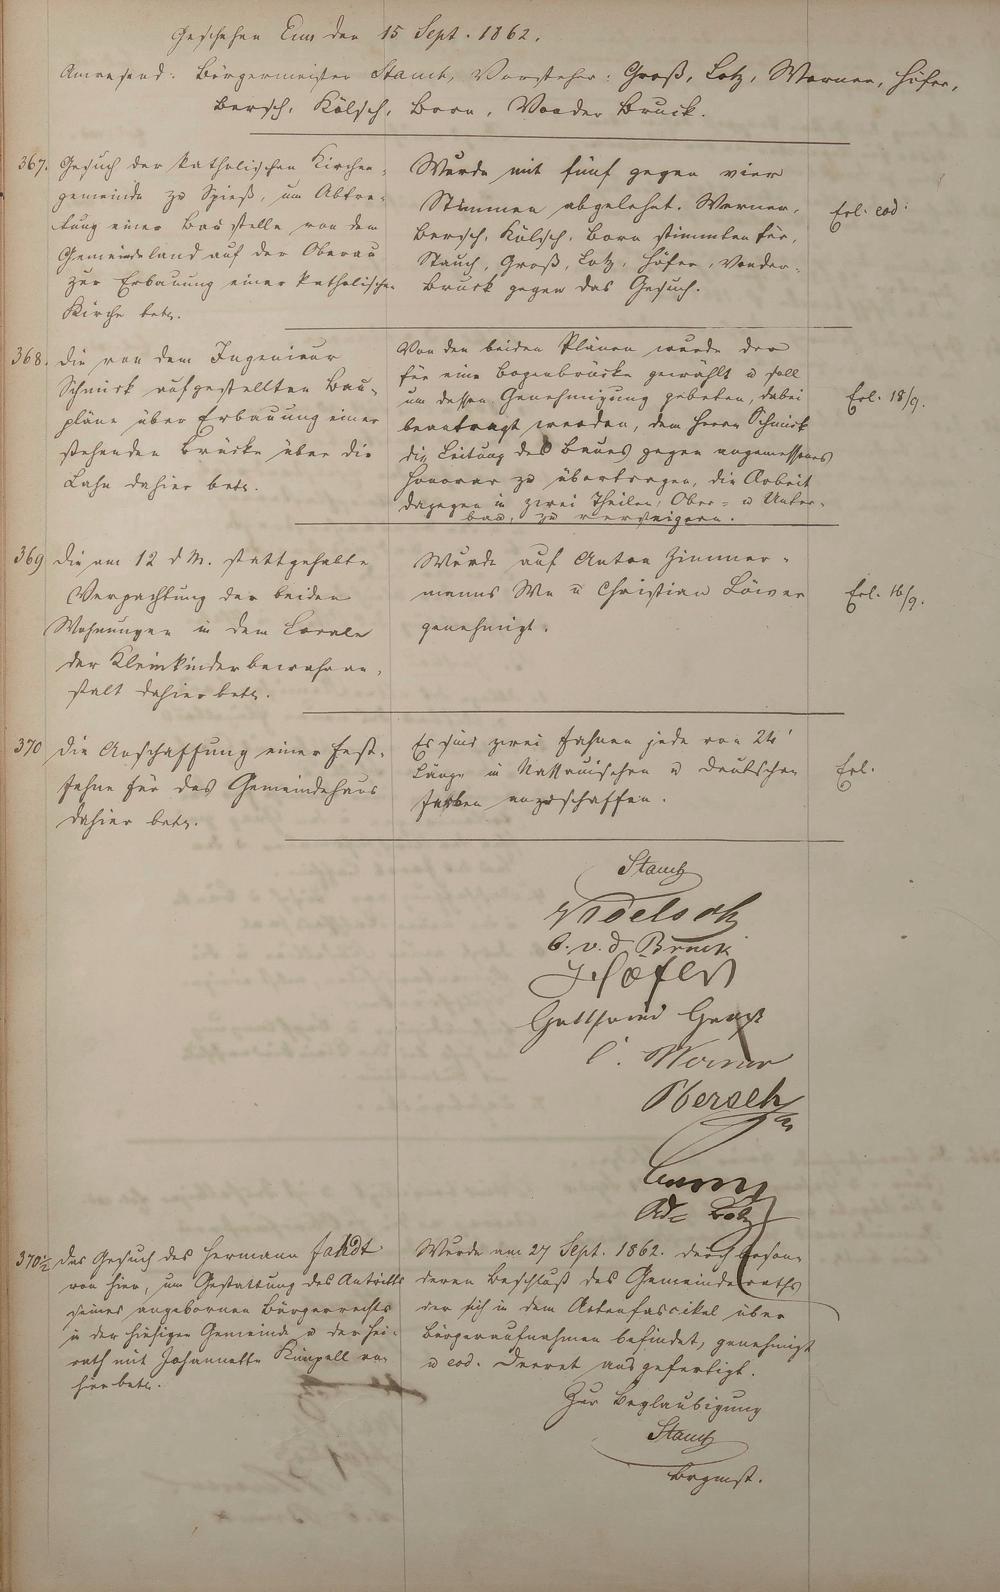 Geschehen Ems den 15 Sept. 1862.
Anwesend: Bürgermeister Stauch, Vorsteher: Groß, Lotz, Werner, Höfer,
Bersch, Kölsch, Born, Vonder Bruck.
367. Gesuch der katholischen Kirchen-
gemeinde zu Spieß, um Abtre-
tung einer Baustelle von dem
Gemeindeland auf der Oberau
zur Erbauung einer katholischen
Kirche betr.
Wurde mit fünf gegen vier
Stimmen abgelehnt. Werner,
Bersch, Kölsch, Born stimmten für,
Stauch, Groß, Lotz, Höfer, Vonder-
Bruck gegen das Gesuch.
Erl. eod.
368. Die von dem Ingenieur
Schmick aufgestellten Bau-
pläne über Erbauung einer
stehenden Brücke über die
Lahn dahier betr.
Von den beiden Plänen wurde der
für eine Bogenbrücke gewählt u soll
um dessen Genehmigung gebeten, dabei
beantragt werden, dem Herrn Schmick
die Leitung des Baues gegen angemessenes
Honorar zu übertragen, die Arbeit
dagegen in zwei Theilen, Ober- u Unter-
bau, zu versteigern.
Erl. 18/9.
369 Die am 12 d M. stattgehalte
Verpachtung der beiden
Wohnungen in dem Locale
der Kleinkinderbewahran-
stalt dahier betr.
Wurde auf Anton Zimmer-
manns We u Christian Löwer
genehmigt.
Erl. 16/9.
370 Die Anschaffung einer Fest-
fahne für das Gemeindehaus
dahier betr.
Es sind zwei Fahnen jede von 24'
Länge in Nassauischen u Deutschen
Farben anzuschaffen.
Erl.
Stauch
C. v. d. Bruck
J. Höfer
Gottfried Groß
C. Werner
Bersch
Ad. Lotz
370 1/2 Das Gesuch des Hermann Fahdt
von hier, um Gestattung des Antritts
seines angebornen Bürgerrechts
in der hiesigen Gemeinde u der Hei-
rath mit Johannette Kimpell von
hier betr.
Wurde am 27 Sept. 1862. durch beson-
deren Beschluß des Gemeinderaths
der sich in dem Actenfascikel über
Bürgeraufnahmen befindet, genehmigt
u eod. Decret ausgefertigt.
Zur Beglaubigung
Stauch
Brgmst.